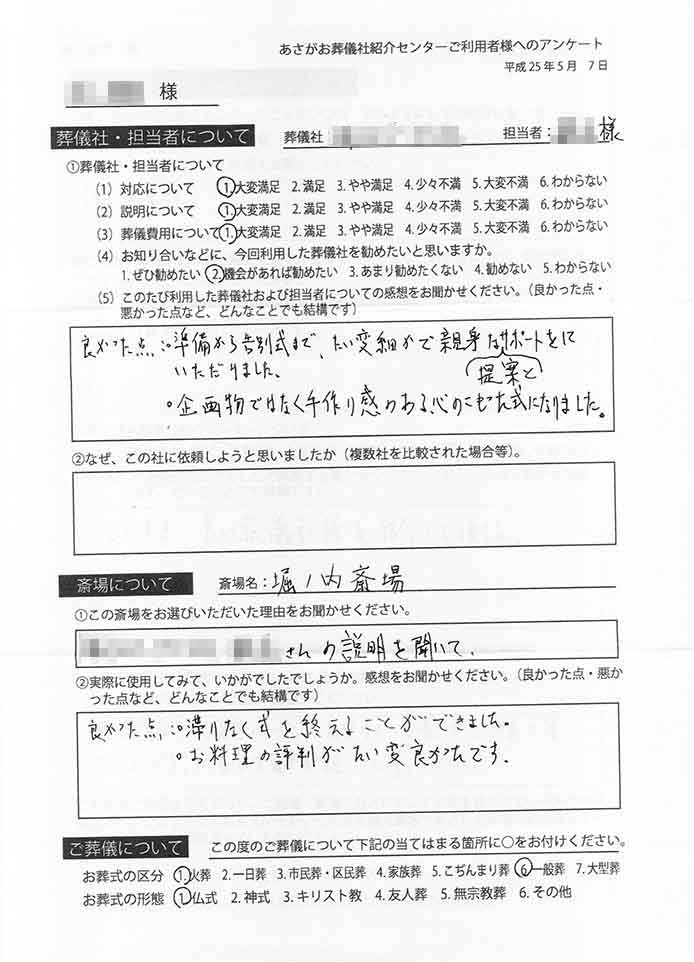 あさがお葬儀社紹介センターご利用者様へのアンケート
平成25年5月 7日
様
葬儀社・担当者について 葬儀社: 担当者: 様
①葬儀社・担当者について
(1) 対応について 1.大変満足 2.満足 3.やや満足 4.少々不満 5.大変不満 6.わからない
(2) 説明について 1.大変満足 2.満足 3.やや満足 4.少々不満 5.大変不満 6.わからない
(3) 葬儀費用について 1.大変満足 2.満足 3.やや満足 4.少々不満 5.大変不満 6.わからない
(4) お知り合いなどに、今回利用した葬儀社を勧めたいと思いますか。
1.ぜひ勧めたい 2.機会があれば勧めたい 3.あまり勧めたくない 4.勧めない 5.わからない
(5) このたび利用した葬儀社および担当者についての感想をお聞かせください。(良かった点・
悪かった点など、どんなことでも結構です)
良かった点:○準備から告別式まで、たい変細かで親身なサポートをして
いただりました。 提案と
○企画物ではなく手作り感のある心のこもった式になりました。
②なぜ、この社に依頼しようと思いましたか(複数社を比較された場合等)。
斎場について 斎場名:堀ノ内斎場
①この斎場をお選びいただいた理由をお聞かせください。
さんの説明を聞いて、
②実際に使用してみて、いかがでしたでしょうか。感想をお聞かせください。(良かった点・悪か
った点など、どんなことでも結構です)
良かった点:○滞りなく式を終えることができました。
○お料理の評判がたい変良かったです。
ご葬儀について この度のご葬儀について下記の当てはまる箇所に○をお付けください。
お葬式の区分 1.火葬 2.一日葬 3.市民葬・区民葬 4.家族葬 5.こぢんまり葬 6.一般葬 7.大型葬
お葬式の形態 1.仏式 2.神式 3.キリスト教 4.友人葬 5.無宗教葬 6.その他